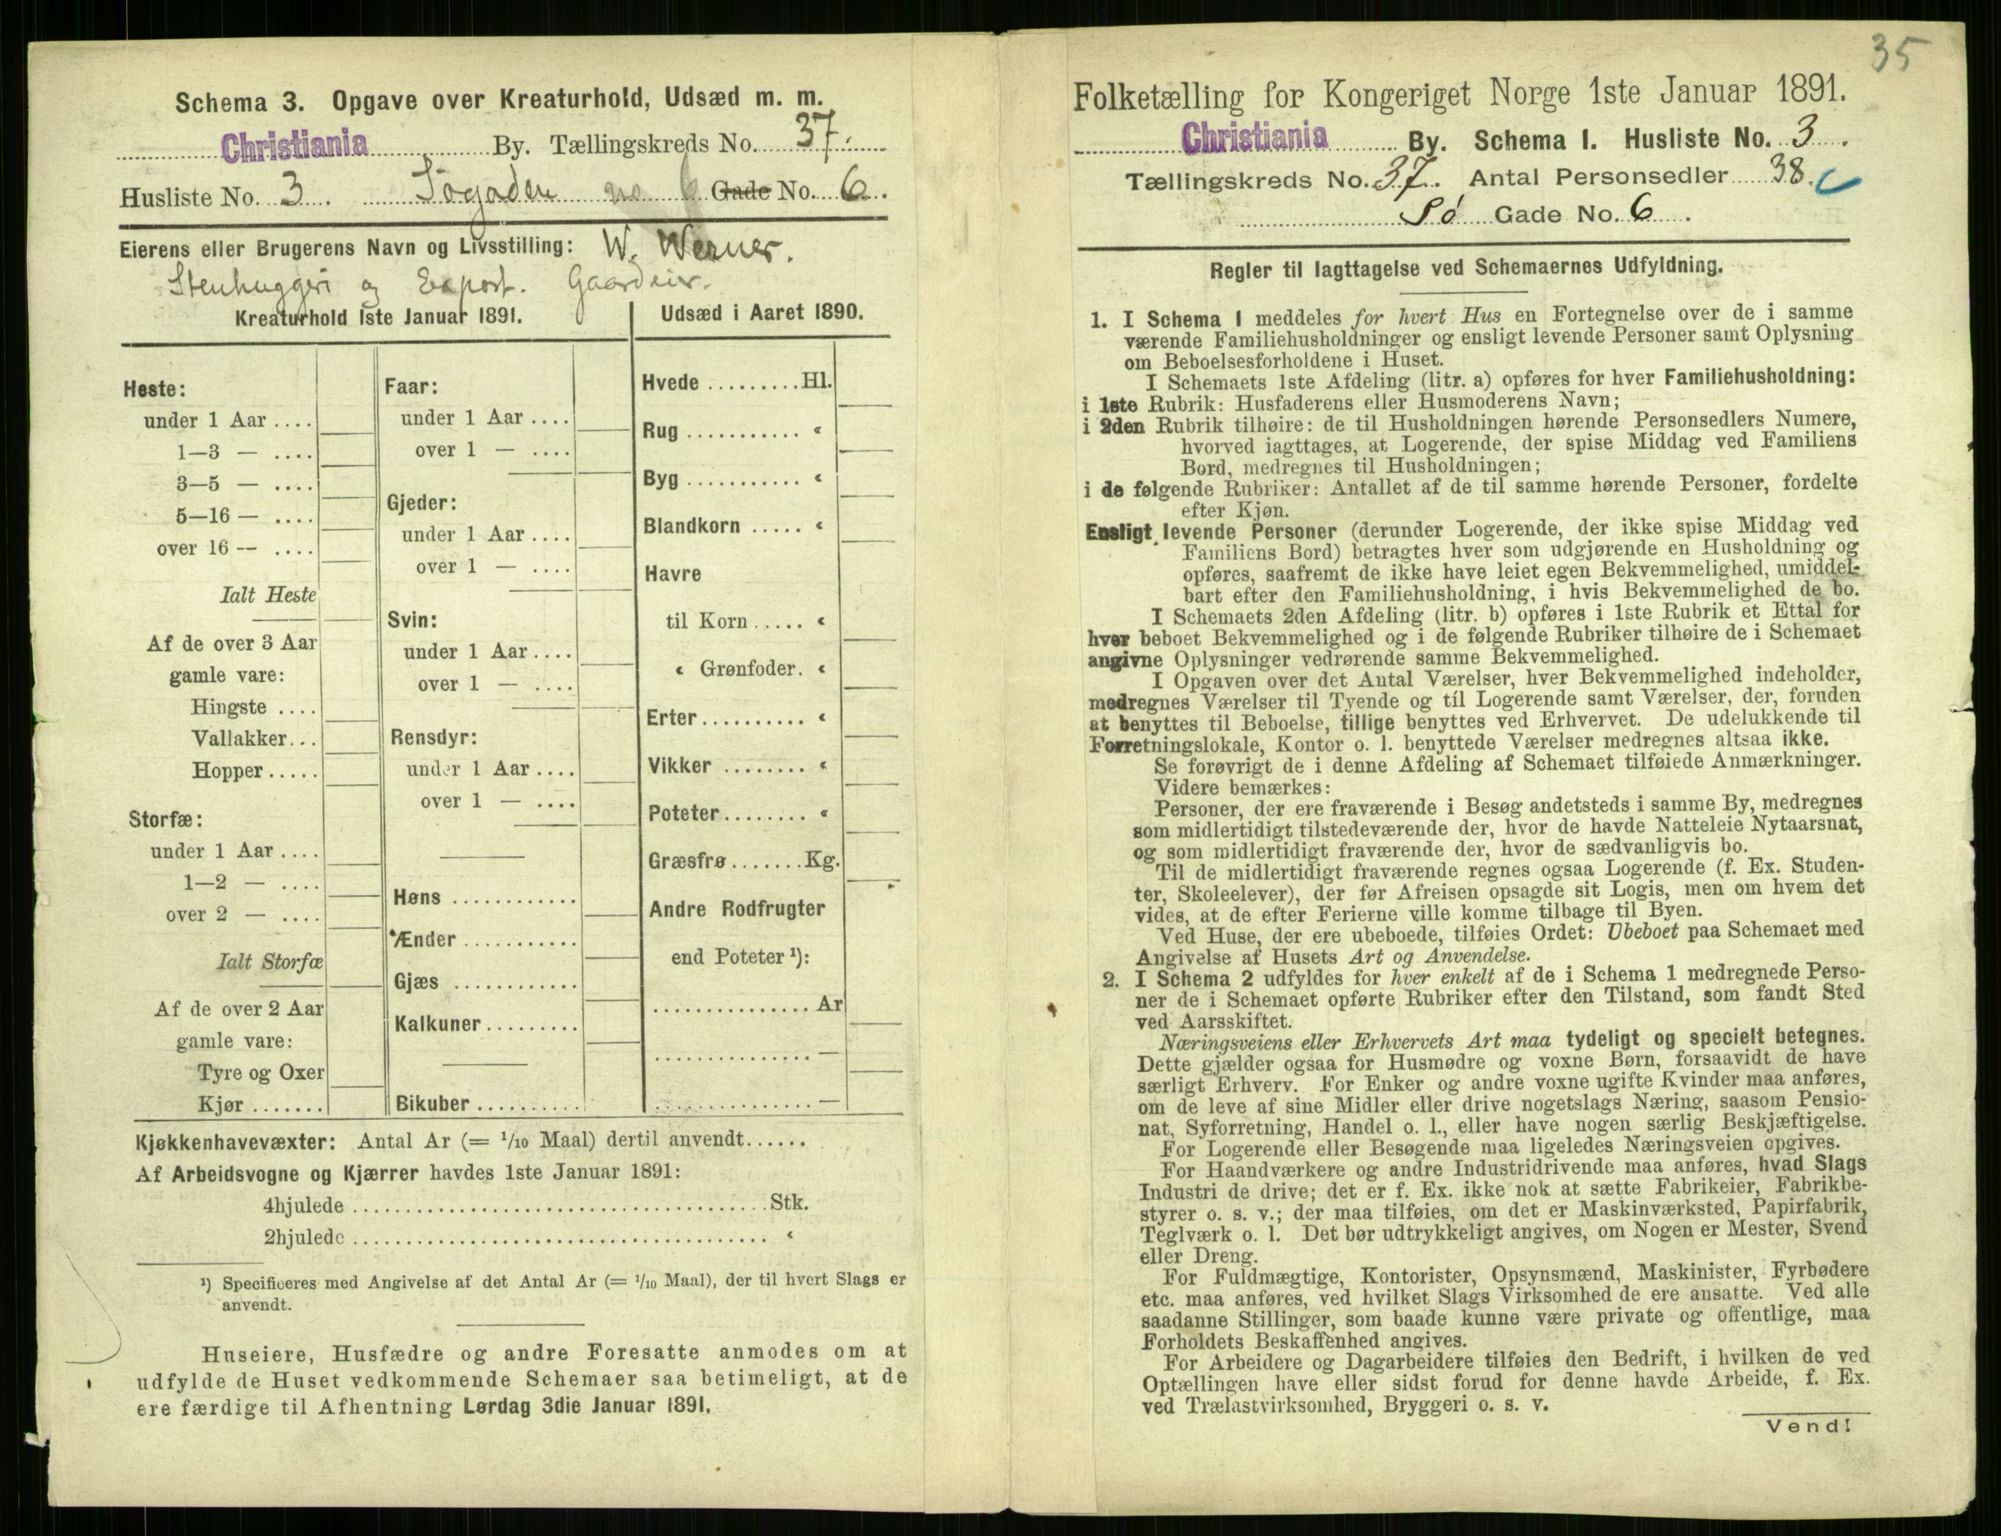 Schema 3. Opgave over Kreaturhold, Udsæd m. m.
Christiania By. Tællingskreds No. 37.
Husliste No. 3 Søgaden no 6 Gade No. 6.
Eierens eller Brugerens Navn og Livsstilling: W. Werner.
Stenhuggeri og Export. Gaardeier.
Kreaturhold 1ste Januar 1891.
Heste:
under 1 Aar ....
1—3 — ....
3—5 — ....
5—16 — ....
over 16 — ....
Ialt Heste
Af de over 3 Aar
gamle vare:
Hingste ....
Vallakker...
Hopper.....
Storfæ:
under 1 Aar ....
1—2 — ....
over 2 — ....
Ialt Storfæ
Af de over 2 Aar
gamle vare:
Tyre og Oxer
Kjør.......
Faar:
under 1 Aar ....
over 1 — ....
Gjeder:
under 1 Aar ....
over 1 — ....
Svin:
under 1 Aar ....
over 1 — ....
Rensdyr:
under 1 Aar ....
over 1 — ....
Høns ............
Ænder ...........
Gjæs ............
Kalkuner.........
Bikuber..........
Udsæd i Aaret 1890.
Hvede .........Hl.
Rug ........... «
Byg ........... «
Blandkorn ..... «
Havre
til Korn ..... «
« Grønfoder. «
Erter.......... «
Vikker ........ «
Poteter........ «
Græsfrø.......Kg.
Andre Rodfrugter
end Poteter ¹):
...............Ar
............... —
............... —
Kjøkkenhavevæxter: Antal Ar (= 1/10 Maal) dertil anvendt......
Af Arbeidsvogne og Kjærrer havdes 1ste Januar 1891:
4hjulede ........................................Stk.
2hjulede ........................................ «
¹) Specificeres med Angivelse af det Antal Ar (= 1/10 Maal), der til hvert Slags er
anvendt.
Huseiere, Husfædre og andre Foresatte anmodes om at
udfylde de Huset vedkommende Schemaer saa betimeligt, at de
ere færdige til Afhentning Lørdag 3die Januar 1891.
35
Folketælling for Kongeriget Norge 1ste Januar 1891.
Christiania By. Schema I. Husliste No. 3.
Tællingskreds No. 37. Antal Personsedler 38.
Sø Gade No. 6.
Regler til Iagttagelse ved Schemaernes Udfyldning.
1. I Schema 1 meddeles for hvert Hus en Fortegnelse over de i samme
værende Familiehusholdninger og ensligt levende Personer samt Oplysning
om Beboelsesforholdene i Huset.
I Schemaets 1ste Afdeling (litr. a) opføres for hver Familiehusholdning:
i 1ste Rubrik: Husfaderens eller Husmoderens Navn;
i 2den Rubrik tilhøire: de til Husholdningen hørende Personsedlers Numere,
hvorved iagttages, at Logerende, der spise Middag ved Familiens
Bord, medregnes til Husholdningen;
i de følgende Rubriker: Antallet af de til samme hørende Personer, fordelte
efter Kjøn.
Ensligt levende Personer (derunder Logerende, der ikke spise Middag ved
Familiens Bord) betragtes hver som udgjørende en Husholdning og
opføres, saafremt de ikke have leiet egen Bekvemmelighed, umiddel-
bart efter den Familiehusholdning, i hvis Bekvemmelighed de bo.
I Schemaets 2den Afdeling (litr. b) opføres i 1ste Rubrik et Ettal for
hver beboet Bekvemmelighed og i de følgende Rubriker tilhøire de i Schemaet
angivne Oplysninger vedrørende samme Bekvemmelighed.
I Opgaven over det Antal Værelser, hver Bekvemmelighed indeholder,
medregnes Værelser til Tyende og til Logerende samt Værelser, der, foruden
at benyttes til Beboelse, tillige benyttes ved Erhvervet. De udelukkende til
Forretningslokale, Kontor o. l. benyttede Værelser medregnes altsaa ikke.
Se forøvrigt de i denne Afdeling af Schemaet tilføiede Anmærkninger.
Videre bemærkes:
Personer, der ere fraværende i Besøg andetsteds i samme By, medregnes
som midlertidigt tilstedeværende der, hvor de havde Natteleie Nytaarsnat,
og som midlertidigt fraværende der, hvor de sædvanligvis bo.
Til de midlertidigt fraværende regnes ogsaa Logerende (f. Ex. Studen-
ter, Skoleelever), der før Afreisen opsagde sit Logis, men om hvem det
vides, at de efter Ferierne ville komme tilbage til Byen.
Ved Huse, der ere ubeboede, tilføies Ordet: Ubeboet paa Schemaet med
Angivelse af Husets Art og Anvendelse.
2. I Schema 2 udfyldes for hver enkelt af de i Schema 1 medregnede Perso-
ner de i Schemaet opførte Rubriker efter den Tilstand, som fandt Sted
ved Aarsskiftet.
Næringsveiens eller Erhvervets Art maa tydeligt og specielt betegnes.
Dette gjælder ogsaa for Husmødre og voxne Børn, forsaavidt de have
særligt Erhverv. For Enker og andre voxne ugifte Kvinder maa anføres,
om de leve af sine Midler eller drive nogetslags Næring, saasom Pensio-
nat, Syforretning, Handel o. l., eller have nogen særlig Beskjæftigelse.
For Logerende eller Besøgende maa ligeledes Næringsveien opgives.
For Haandværkere og andre Industridrivende maa anføres, hvad Slags
Industri de drive; det er f. Ex. ikke nok at sætte Fabrikeier, Fabrikbe-
styrer o. s. v.; der maa tilføies, om det er Maskinværksted, Papirfabrik,
Teglværk o. l. Det bør udtrykkeligt angives, om Nogen er Mester, Svend
eller Dreng.
For Fuldmægtige, Kontorister, Opsynsmænd, Maskinister, Fyrbødere
etc. maa anføres, ved hvilket Slags Virksomhed de ere ansatte. Ved alle
saadanne Stillinger, som baade kunne være private og offentlige, maa
Forholdets Beskaffenhed angives.
For Arbeidere og Dagarbeidere tilføies den Bedrift, i hvilken de ved
Optællingen have eller sidst forud for denne havde Arbeide, f. Ex.
ved Trælastvirksomhed, Bryggeri o. s. v.
Vend!